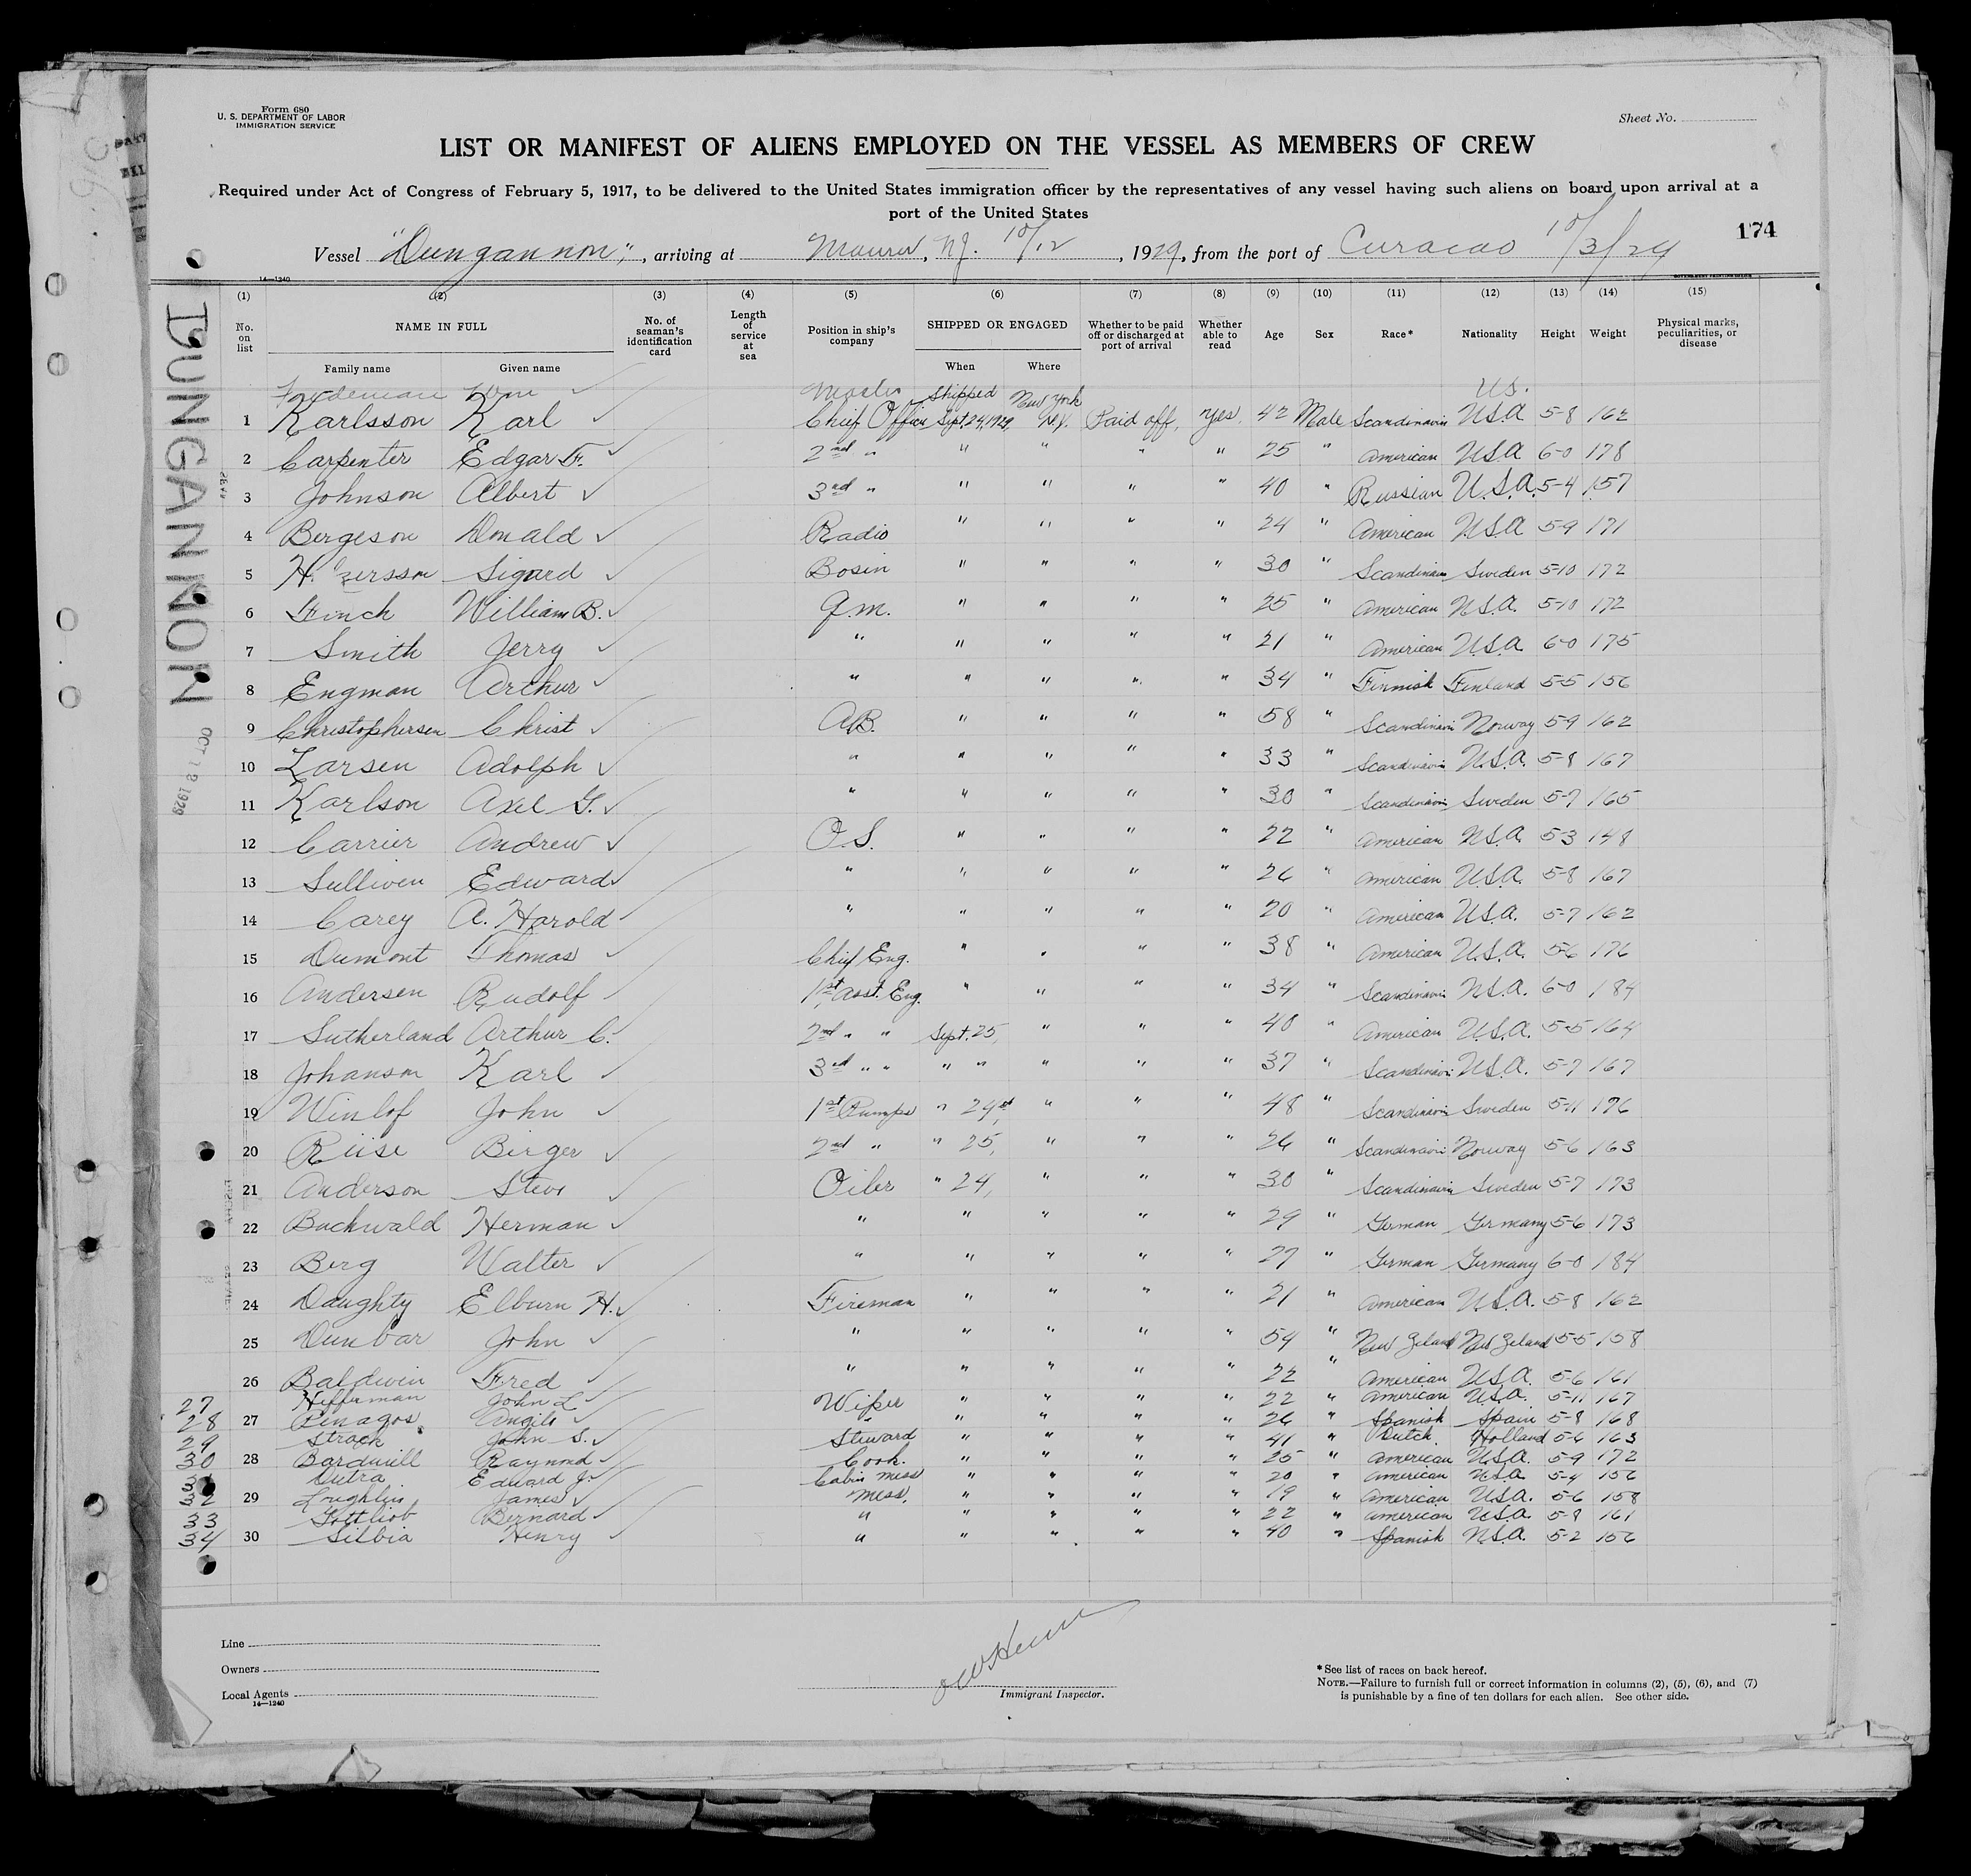 Form 680
U. S. DEPARTMENT OF LABOR
IMMIGRATION SERVICE
Sheet No.
LIST OR MANIFEST OF ALIENS EMPLOYED ON THE VESSEL AS MEMBERS OF CREW
Required under Act of Congress of February 5, 1917, to be delivered to the United States immigration officer by the representatives of any vessel having such aliens on board upon arrival at a
port of the United States
174
Vessel "Dungannon", arriving at Maurer, N.J. 10/12, 1929, from the port of Curacao 10/3/29
14—1240
DUNGANNON
OCT 12 1929
(1) (2) (3) (4) (5) (6) (7) (8) (9) (10) (11) (12) (13) (14) (15)
No. on list NAME IN FULL No. of seaman's identification card Length of service at sea Position in ship's company SHIPPED OR ENGAGED Whether to be paid off or discharged at port of arrival Whether able to read Age Sex Race* Nationality Height Weight Physical marks, peculiarities, or disease
Family name Given name When Where
Wm ✓ Master Shipped New York U.S.
1 Karlsson Karl ✓ Chief Officer Sept. 24, 1929, N.Y. Paid off, Yes, 42 Male Scandinavin USA 5-8 162
2 Carpenter Edgar F. ✓ 2nd " " " " " 25 " American USA 6-0 178
3 Johnson Albert ✓ 3rd " " " " " 40 " Russian U.S.A. 5-4 157
4 Bergeson Donald ✓ Radio " " " " 24 " American USA 5-9 171
5 Sigurd ✓ Bosin " " " " 30 " Scandinavin Sweden 5-10 172
6 Finch William B. ✓ Q.M. " " " " 25 " American U.S.A. 5-10 172
7 Smith Jerry ✓ " " " " " 21 " American U.S.A. 6-0 175
8 Engman Arthur ✓ " " " " " 34 " Finnish Finland 5-5 156
9 Christophersen Christ ✓ A.B. " " " " 58 " Scandinavin Norway 5-9 162
10 Larsen Adolph ✓ " " " " " 33 " Scandinavin U.S.A. 5-8 167
11 Karlson Axel G. ✓ " " " " " 30 " Scandinavin Sweden 5-7 165
12 Carrier Andrew ✓ O.S. " " " " 22 " American U.S.A. 5-3 148
13 Selliven Edward ✓ " " " " " 26 " American U.S.A. 5-8 167
14 Carey A. Harold ✓ " " " " " 20 " American U.S.A. 5-7 162
15 Dumont Thomas ✓ Chief Eng. " " " " 38 " American U.S.A. 5-6 176
16 Andersen Rudolf ✓ 1st Asst. Eng. " " " " 34 " Scandinavin U.S.A. 6-0 184
17 Sutherland Arthur C. ✓ 2nd " " Sept. 25, " " " 40 " American U.S.A. 5-5 164
18 Johanson Karl ✓ 3rd " " " " " " " 37 " Scandinavin U.S.A. 5-7 167
19 Winlof John ✓ 1st Pumps " 24st, " " " 48 " Scandinavin Sweden 5-11 176
20 Riise Birger ✓ 2nd " " 25, " " " 26 " Scandinavin Norway 5-6 163
21 Anderson Steve ✓ Oiler " 24, " " " 30 " Scandinavin Sweden 5-7 173
22 Buckwald Herman ✓ " " " " " 29 " German Germany 5-6 173
23 Berg Walter ✓ " " " " " 27 " German Germany 6-0 184
24 Daughty Elburn H. ✓ Fireman " " " " 21 " American U.S.A. 5-8 162
25 Dunbar John ✓ " " " " " 54 " New Zeland New Zeland 5-5 158
26 Baldwin Fred ✓ " " " " " 22 " American U.S.A. 5-6 161
27 Hefferman John L ✓ Wiper " " " " 22 " American U.S.A. 5-11 167
28 27 Penagos Angilo ✓ " " " " " 26 " Spanish Spain 5-8 168
29 Strack John S. ✓ Steward " " " " 41 " Dutch Holland 5-6 163
30 28 Bardwell Raymond ✓ Cook. " " " " 25 " American U.S.A. 5-9 172
31 Dutra Edward J. ✓ Cabin Mess " " " " 20 " American U.S.A. 5-4 156
32 29 Loughlin James ✓ Mess. " " " " 19 " American U.S.A. 5-6 158
33 Gottliob Bernard ✓ " " " " " 22 " American U.S.A. 5-8 161
34 30 Silbia Henry ✓ " " " " " 40 " Spanish U.S.A. 5-2 156
Line
Owners
Local Agents
14—1240
Immigrant Inspector.
*See list of races on back hereof.
NOTE.—Failure to furnish full or correct information in columns (2), (5), (6), and (7)
is punishable by a fine of ten dollars for each alien. See other side.